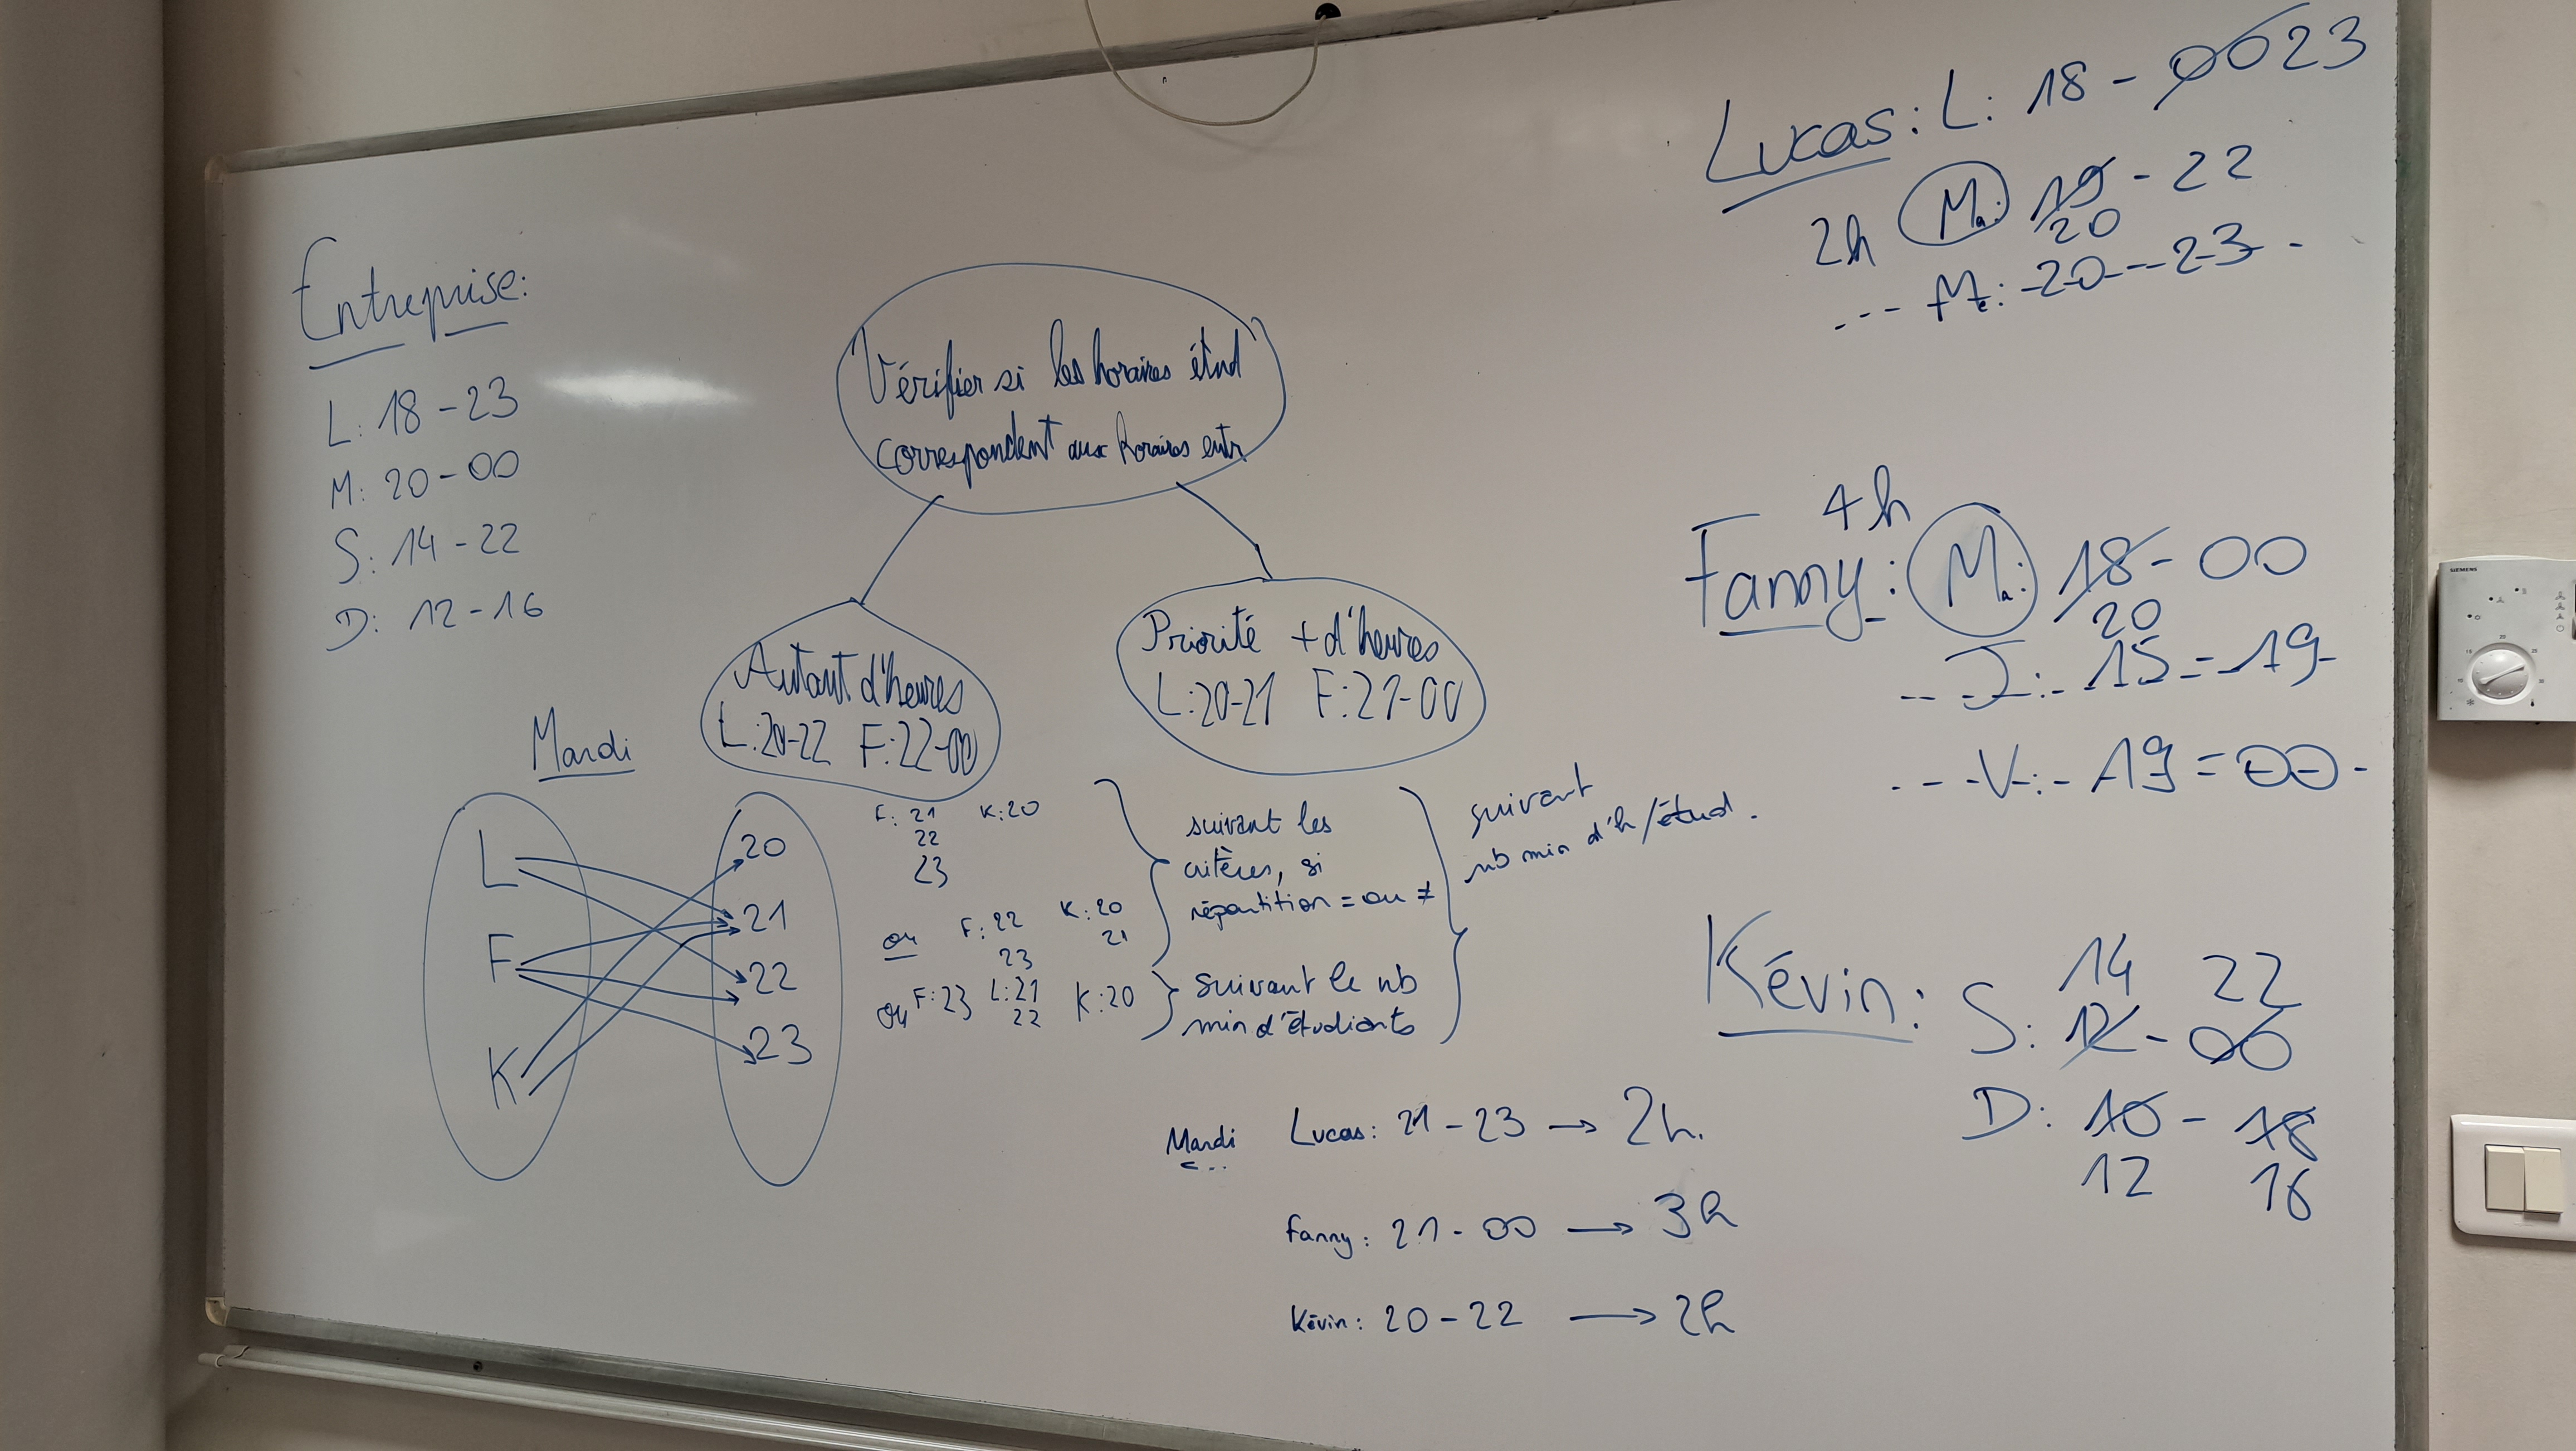 Entreprise:
L: 18 - 23
M: 20 - 00
S: 14 - 22
D: 12 - 16
Vérifier si les horaires étud
correspondent aux horaires entr
Autant d'heures
L:20-22 F:22-00
Priorité + d'heures
L:20-21 F:21-00
Mardi
L
F
K
20
21
22
23
F: 21 K:20
22
23
ou F:22 K:20
23 21
ou F:23 L:21 K:20
22
suivant les
critères, si
répartition = ou ≠
suivant le nb
min d'étudiants
suivant
nb min d'h/étud.
Mardi Lucas: 21 - 23 → 2h.
Fanny: 21 - 00 → 3h
Kévin: 20 - 22 → 2h
Lucas: L: 18 - 00 23
2h Ma: 19 - 22
20
--- Me: 20 - 23
4h
Fanny: Ma: 18 - 00
20
J: 15 - 19
V: 19 - 00
Kévin: S: 14 22
12 - 00
D: 10 - 18
12 16
SIEMENS